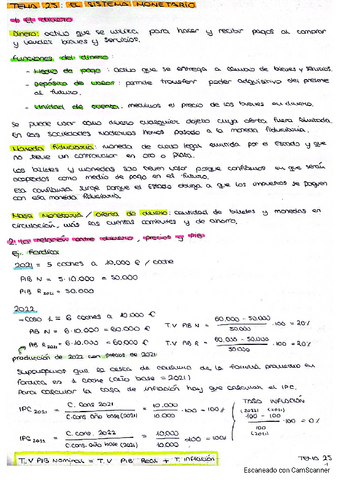 TEMA 25: EL SISTEMA MONETARIO
El dinero
Dinero: activo que se utiliza para hacer y recibir pagos al comprar
y vender bienes y servicios.
Funciones del dinero:
- Medio de pago: activo que se entrega a cambio de bienes y servicios.
- Depósito de valor: permite transferir poder adquisitivo del presente
al futuro.
- Unidad de cuenta: medimos el precio de los bienes en dinero.
Se puede usar como dinero cualquier objeto cuya oferta fuera limitada.
En las sociedades modernas hemos pasado a la moneda fiduciaria.
Moneda fiduciaria: moneda de curso legal emitida por el Estado y que
no tiene un contravalor en oro o plata.
Los billetes y monedas solo tienen valor porque confiamos en que serán
aceptados como medio de pago en el futuro.
Esa confianza surge porque el Estado obliga a que los impuestos se paguen
con esa moneda fiduciaria.
Masa monetaria / oferta de dinero: cantidad de billetes y monedas en
circulación, más las cuentas corrientes y de ahorro.
La relación entre dinero, precios y PIB
Ej. Fordlia
2021 = 5 coches a 10.000 € / coche
PIB N = 5 · 10.000 = 50.000
PIB R 2021 = 50.000
2022
- Caso 1 = 6 coches a 10.000 €
PIB N = 6 · 10.000 = 60.000 € T.V PIB N = 60.000 - 50.000 / 50.000 · 100 = 20%
PIB R = 6 · 10.000 = 60.000 € T.V PIB R = 60.000 - 50.000 / 50.000 · 100 = 20%
producción de 2022 con precios de 2021
Supongamos que la cesta de consumo de la familia promedio en
Fordlia es 1 coche (año base = 2021)
Para calcular la tasa de inflación hay que calcular el IPC.
IPC 2021 = C. cons 2021 / C. cons año base (2021) = 10.000 / 10.000 · 100 = 100%
IPC 2022 = C. cons. 2022 / C. cons. año base (2021) = 10.000 / 10.000 · 100 = 100%
TASA INFLACIÓN
(2022) (2021)
100 - 100 / 100 · 100 = 0%
T.V PIB Nominal = T.V PIB Real + T. inflación
TEMA 25
1
Escaneado con CamScanner